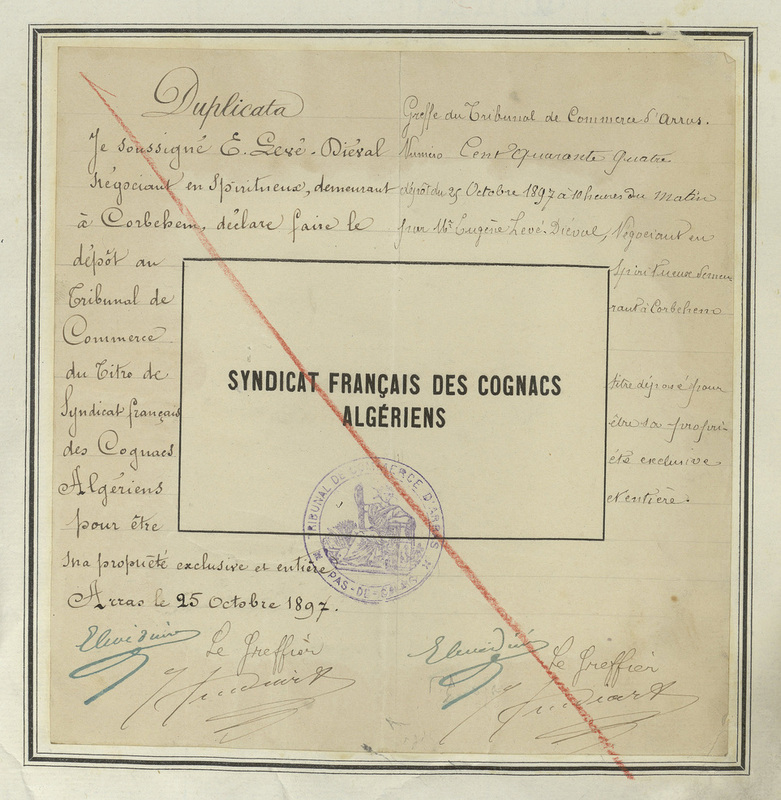 Duplicata
Je soussigné E. Levé-Diéval
Négociant en Spiritueux, demeurant
à Corbehem, déclare faire le
dépôt au
Tribunal de
Commerce
du Titre de
Syndicat français
des Cognacs
Algériens
pour être
ma propriété exclusive et entière
Arras le 25 Octobre 1897.
Le Greffier
Greffe du Tribunal de Commerce d'Arras.
Numéro Cent Quarante Quatre
dépôt du 25 Octobre 1897 à 10 heures du Matin
par Mr Eugène Levé-Diéval, Négociant en
Spiritueux demeu
rant à Corbehem
titre déposé pour
être sa propri-
été exclusive
et entière.
Le Greffier
SYNDICAT FRANÇAIS DES COGNACS
ALGÉRIENS
TRIBUNAL DE COMMERCE D'ARRAS
PAS-DE-CALAIS